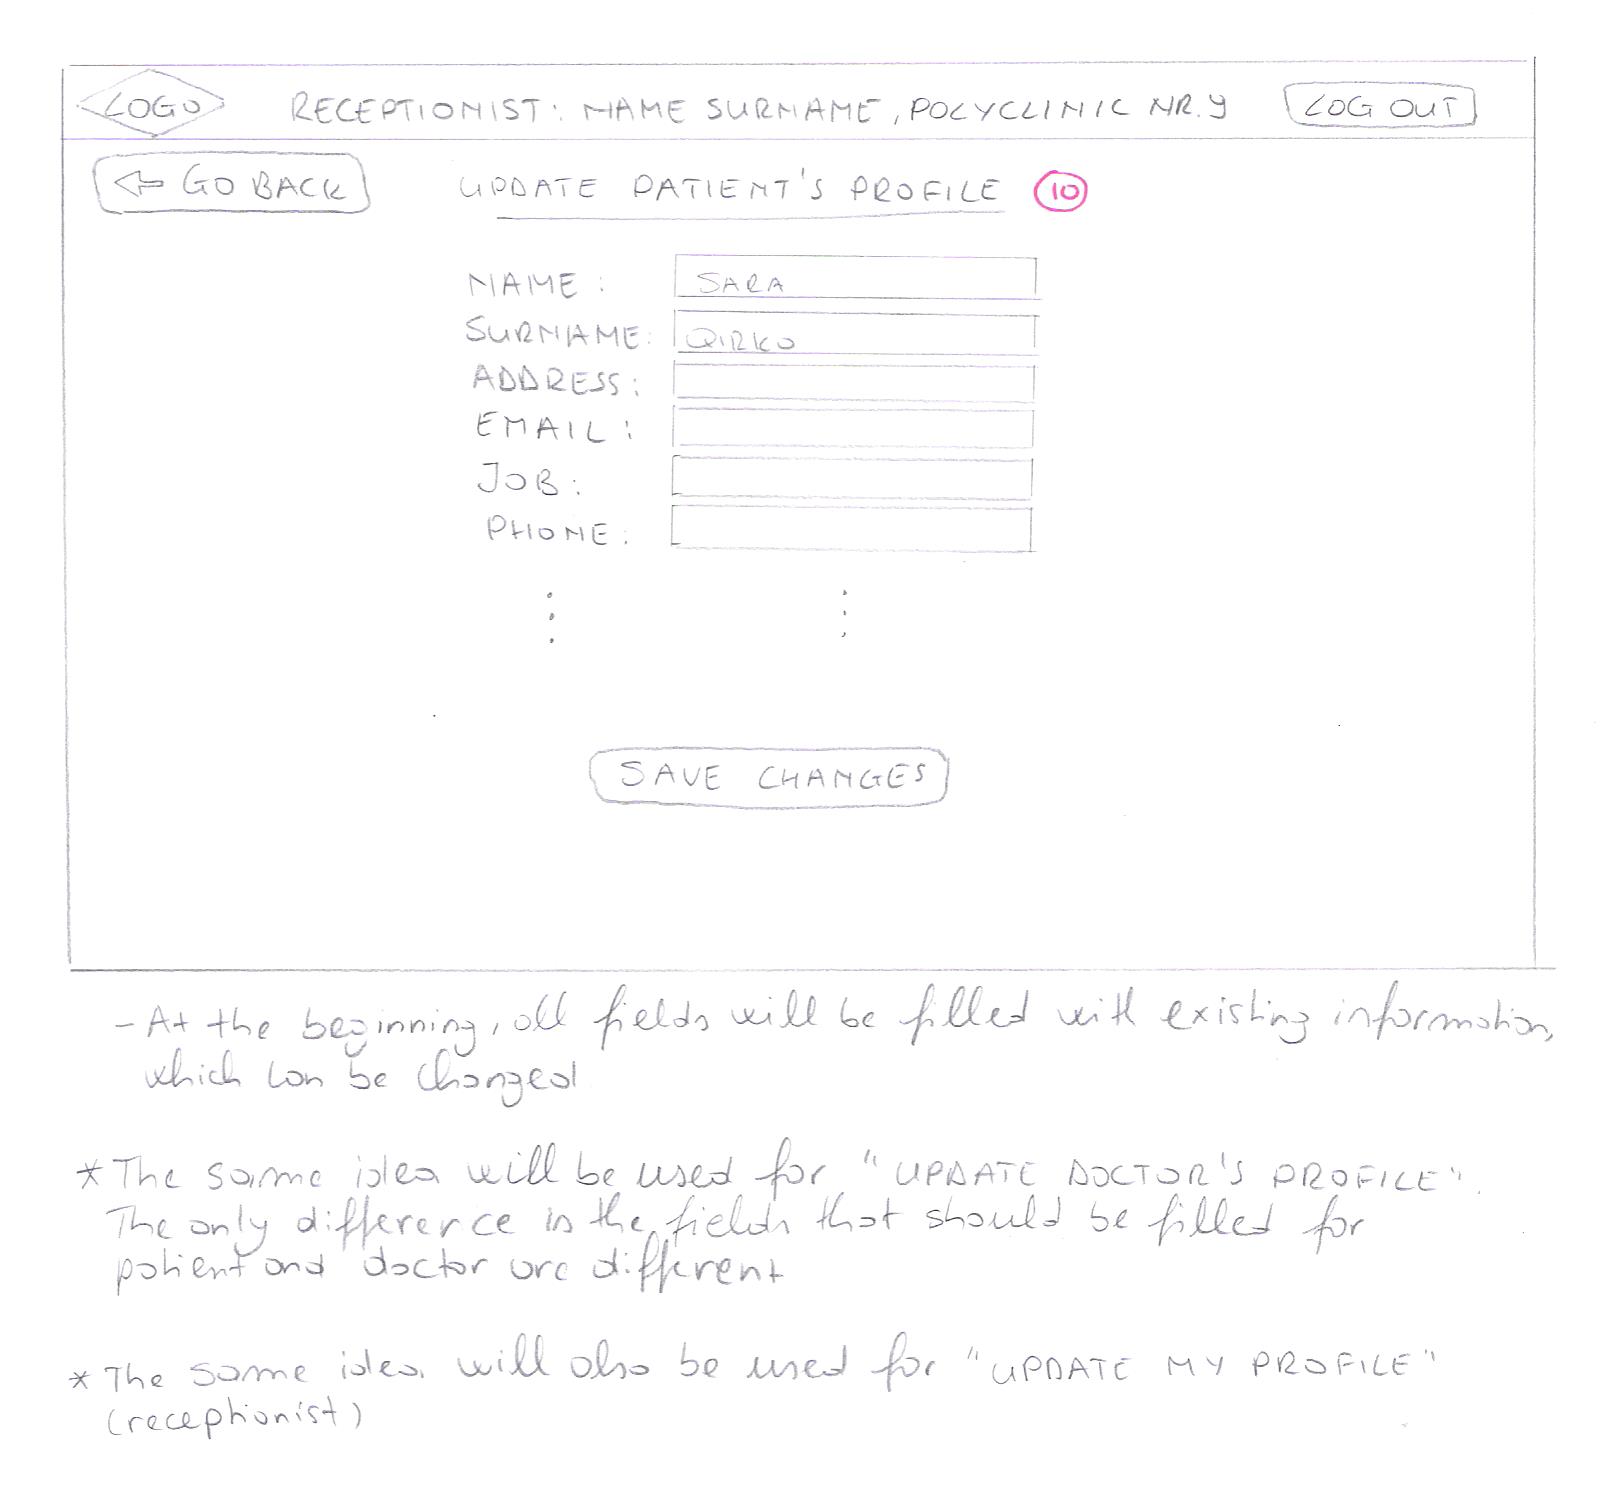 LOGO RECEPTIONIST: NAME SURNAME, POLYCLINIC NR.9 LOG OUT
GO BACK UPDATE PATIENT'S PROFILE 10
NAME: SARA
SURNAME: QIRKO
ADDRESS:
EMAIL:
JOB:
PHONE:
SAVE CHANGES
- At the beginning, all fields will be filled with existing information,
which can be changed
* The same idea will be used for "UPDATE DOCTOR'S PROFILE".
The only difference is the fields that should be filled for
patient and doctor are different
* The same idea will also be used for "UPDATE MY PROFILE"
(receptionist)